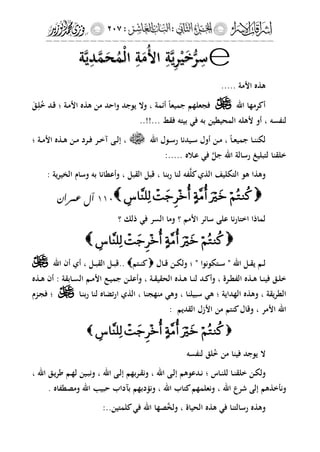 إشراقات الأمة الجزء الثاني : الباب العاشر : ٢٠٧
سِرُّ خَيْرِيَّةِ الأُمَةِ الْمُحَمَّدِيَّة
هذه الأمة .....
أكرمها الله ﷺ فجعلهم جميعاً أئمة ، ولا يوجد واحد من هذه الأمة ؛ قد خُلِقَ
لنفسه ، أو لأهله المحيطين به في بيته فقط ...!!..
لكننا جميعاً ، من أول سيدنا رسول الله ، إلى آخر فرد من هذه الأمة ؛
خلقنا لتبليغ رسالة الله جلَّ في علاه .....:
وهذا هو التكليف الذي كلَّفه لنا ربنا ، قبل القبل ، وأعطانا به وسام الخيرية :
﴿كُنتُمْ خَيْرَ أُمَّةٍ أُخْرِجَتْ لِلنَّاسِ﴾ ١١٠ آل عمران
لماذا اختارنا على سائر الأمم ؟ وما السر في ذلك ؟
﴿كُنتُمْ خَيْرَ أُمَّةٍ أُخْرِجَتْ لِلنَّاسِ﴾
لم يقل الله " ستكونوا " ؛ ولكن قال ﴿كنتم﴾ ..قبل القبل ، أي أن الله ﷺ
خلق فينا هذه الفطرة ، وأكد لنا هذه الحقيقة ، وأعلن جميع الأمم السابقة : أن هذه
الطريقة ، وهذه الهداية ؛ هي سبيلنا ، وهي منهجنا ، الذي ارتضاه لنا ربنا ﷺ ؛ فجزم
الله الأمر ، وقال كنتم من الأزل القديم :
﴿كُنتُمْ خَيْرَ أُمَّةٍ أُخْرِجَتْ لِلنَّاسِ﴾
لا يوجد فينا من خُلق لنفسه
ولكن خلقنا للناس ؛ ندعوهم إلى الله ، ونقربهم إلى الله ، ونبين لهم طريق الله ،
ونأخذهم إلى شرع الله ، ونعلمهم كتاب الله ، ونؤدبهم بآداب حبيب الله ومصطفاه .
وهذه رسالتنا في هذه الحياة ، ولخَّصها الله في كلمتين..: